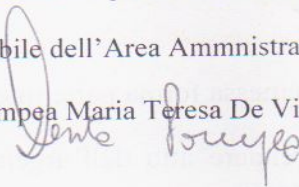 bile dell'Area Ammnistra
mpea Maria Teresa De Vi